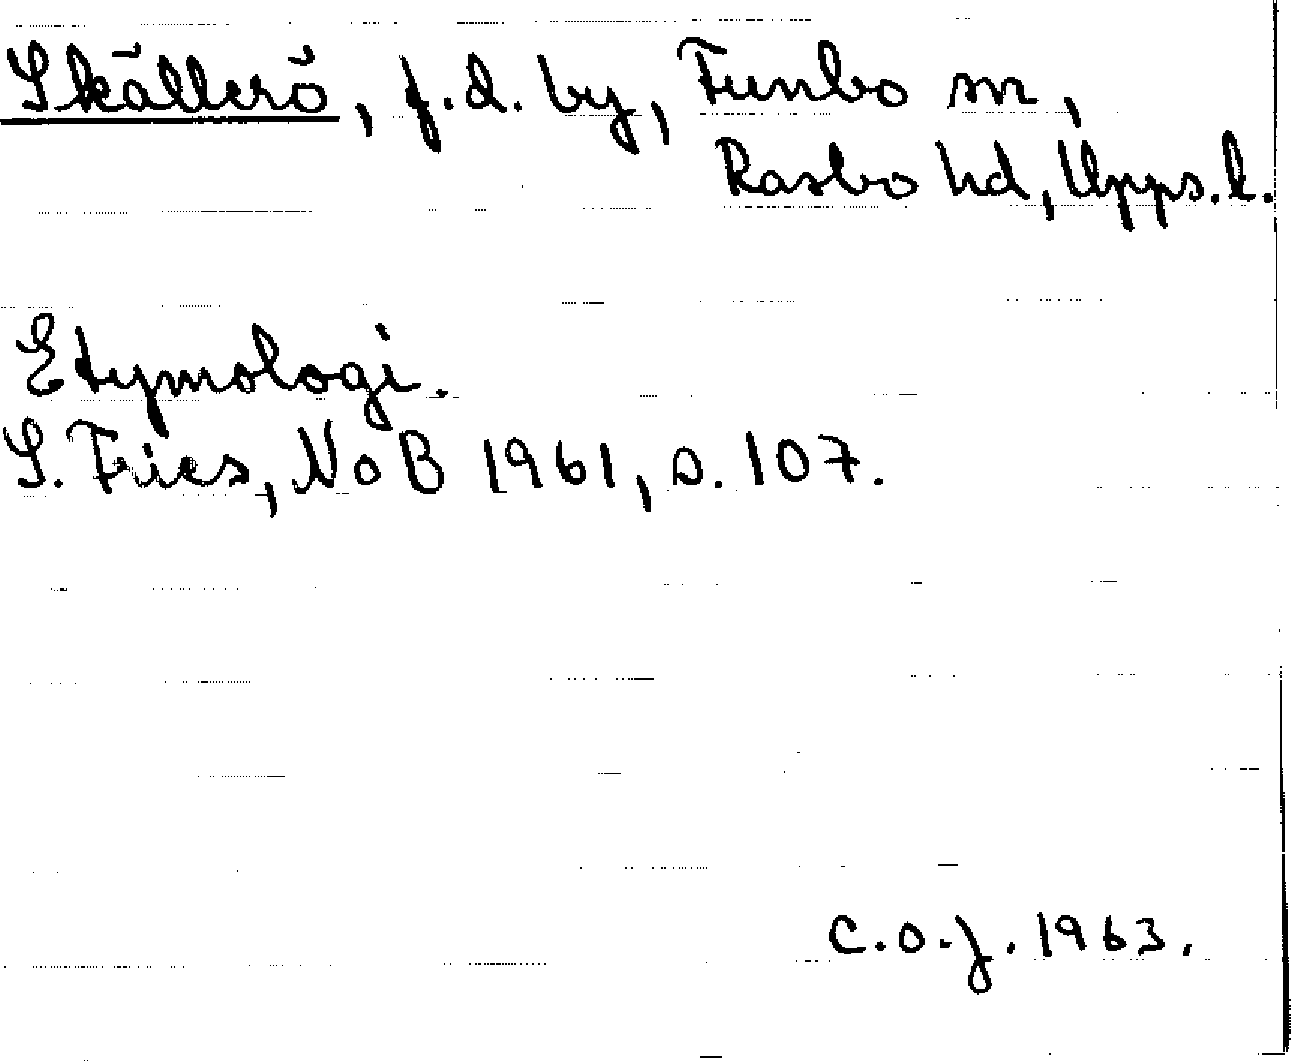 Skällerö, f.d. by, Funbo sn,
Rasbo hd, Upps. l.
Etymologi.
S. Fries, NoB 1961, s. 107.
C.O.J. 1963.